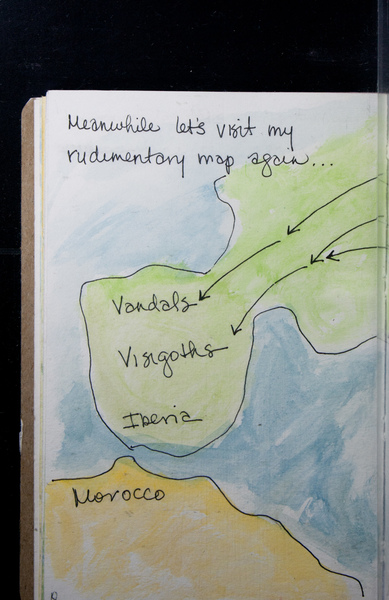 Meanwhile let's visit my
rudimentary map again...
Vandals
Visigoths
Iberia
Morocco